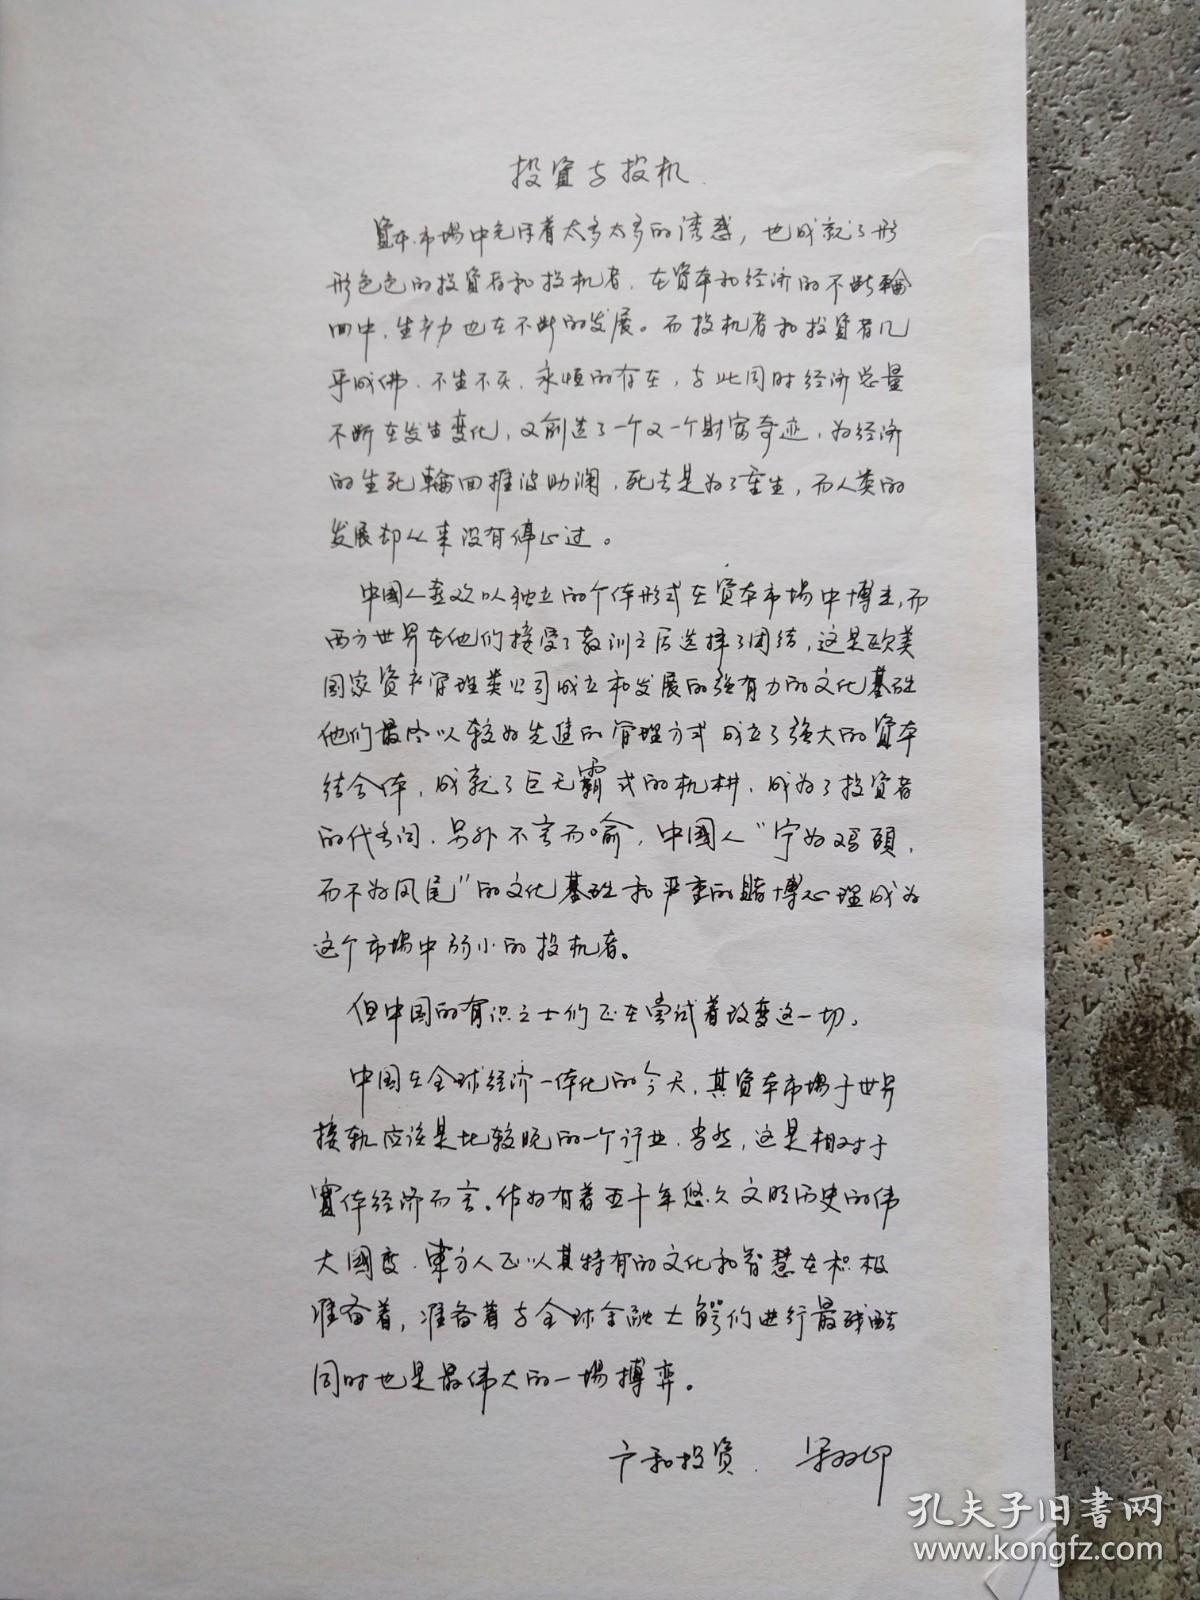 投资与投机
资本市场中充斥着太多太多的诱惑，也成就了形
形色色的投资者和投机者，在资本和经济的不断輪
回中，生产力也在不断的发展。而投机者和投资者几
乎成佛，不生不灭，永恒的存在，与此同时经济总量
不断在发生变化，又创造了一个又一个财富奇迹，为经济
的生死輪回推波助澜，死去是为了重生，而人类的
发展却从来没有停止过。
中國人喜欢以独立的个体形式在资本市場中博击，而
西方世界在他们接受了教训之后选择了团结，这是欧美
国家资产管理类公司成立和发展的强有力的文化基础
他们最终以较为先進的管理方式成立了强大的资本
结合体，成就了巨无霸式的机构，成为了投资者
的代名词，另外不言而喻，中國人“宁为鸡頭，
而不为凤尾”的文化基础和严重的賭博心理成为
这个市場中弱小的投机者。
但中国的有识之士们正在尝试着改变这一切，
中国在全球经济一体化的今天，其资本市場于世界
接轨应该是比较晚的一个行业，当然，这是相对于
實体经济而言。作为有着五千年悠久文明历史的伟
大國度，東方人正以其特有的文化和智慧在积极
准备着，准备着与全球金融大鳄们进行最残酷
同时也是最伟大的一場搏弈。
广和投资
孔夫子旧書网
www.kongfz.com